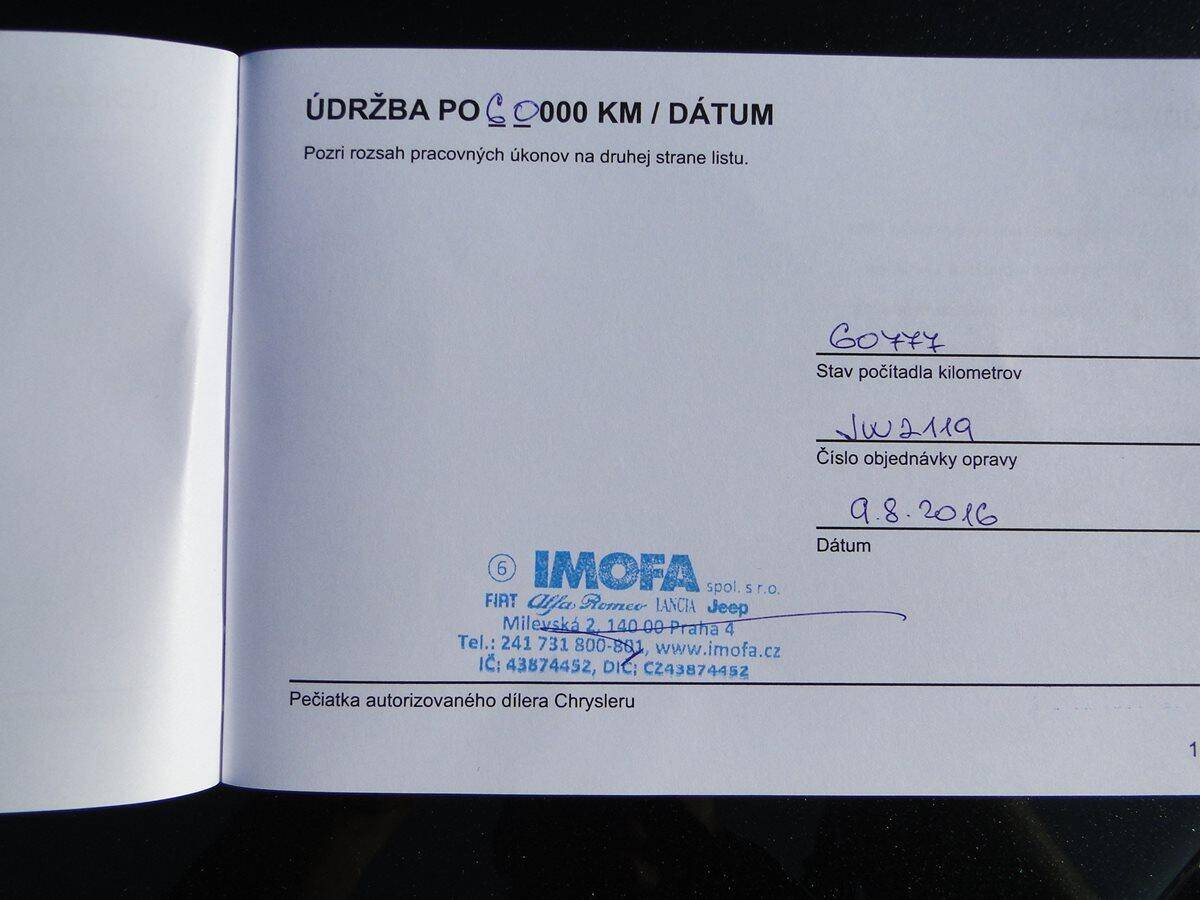 ÚDRŽBA PO 60000 KM / DÁTUM
Pozri rozsah pracovných úkonov na druhej strane listu.
60777
Stav počítadla kilometrov
JW2119
Číslo objednávky opravy
9.8.2016
Dátum
6 IMOFA spol. s r.o.
FIAT Alfa Romeo LANCIA Jeep
Milevská 2, 140 00 Praha 4
Tel.: 241 731 800-801, www.imofa.cz
IČ: 43874452, DIČ: CZ43874452
Pečiatka autorizovaného dílera Chrysleru
1